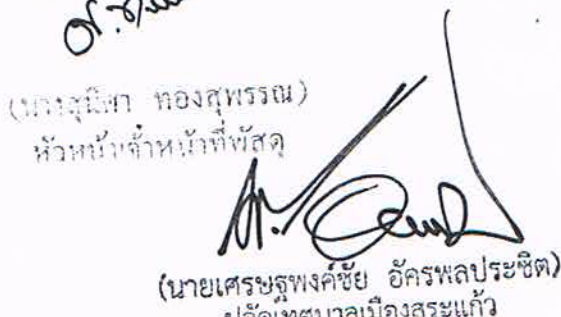 (นางสุนิศา ทองสุพรรณ)
หัวหน้าเจ้าหน้าที่พัสดุ
(นายเศรษฐพงศ์ชัย อัครพลประซิต)
ปลัดเทศบาลเมืองสระแก้ว